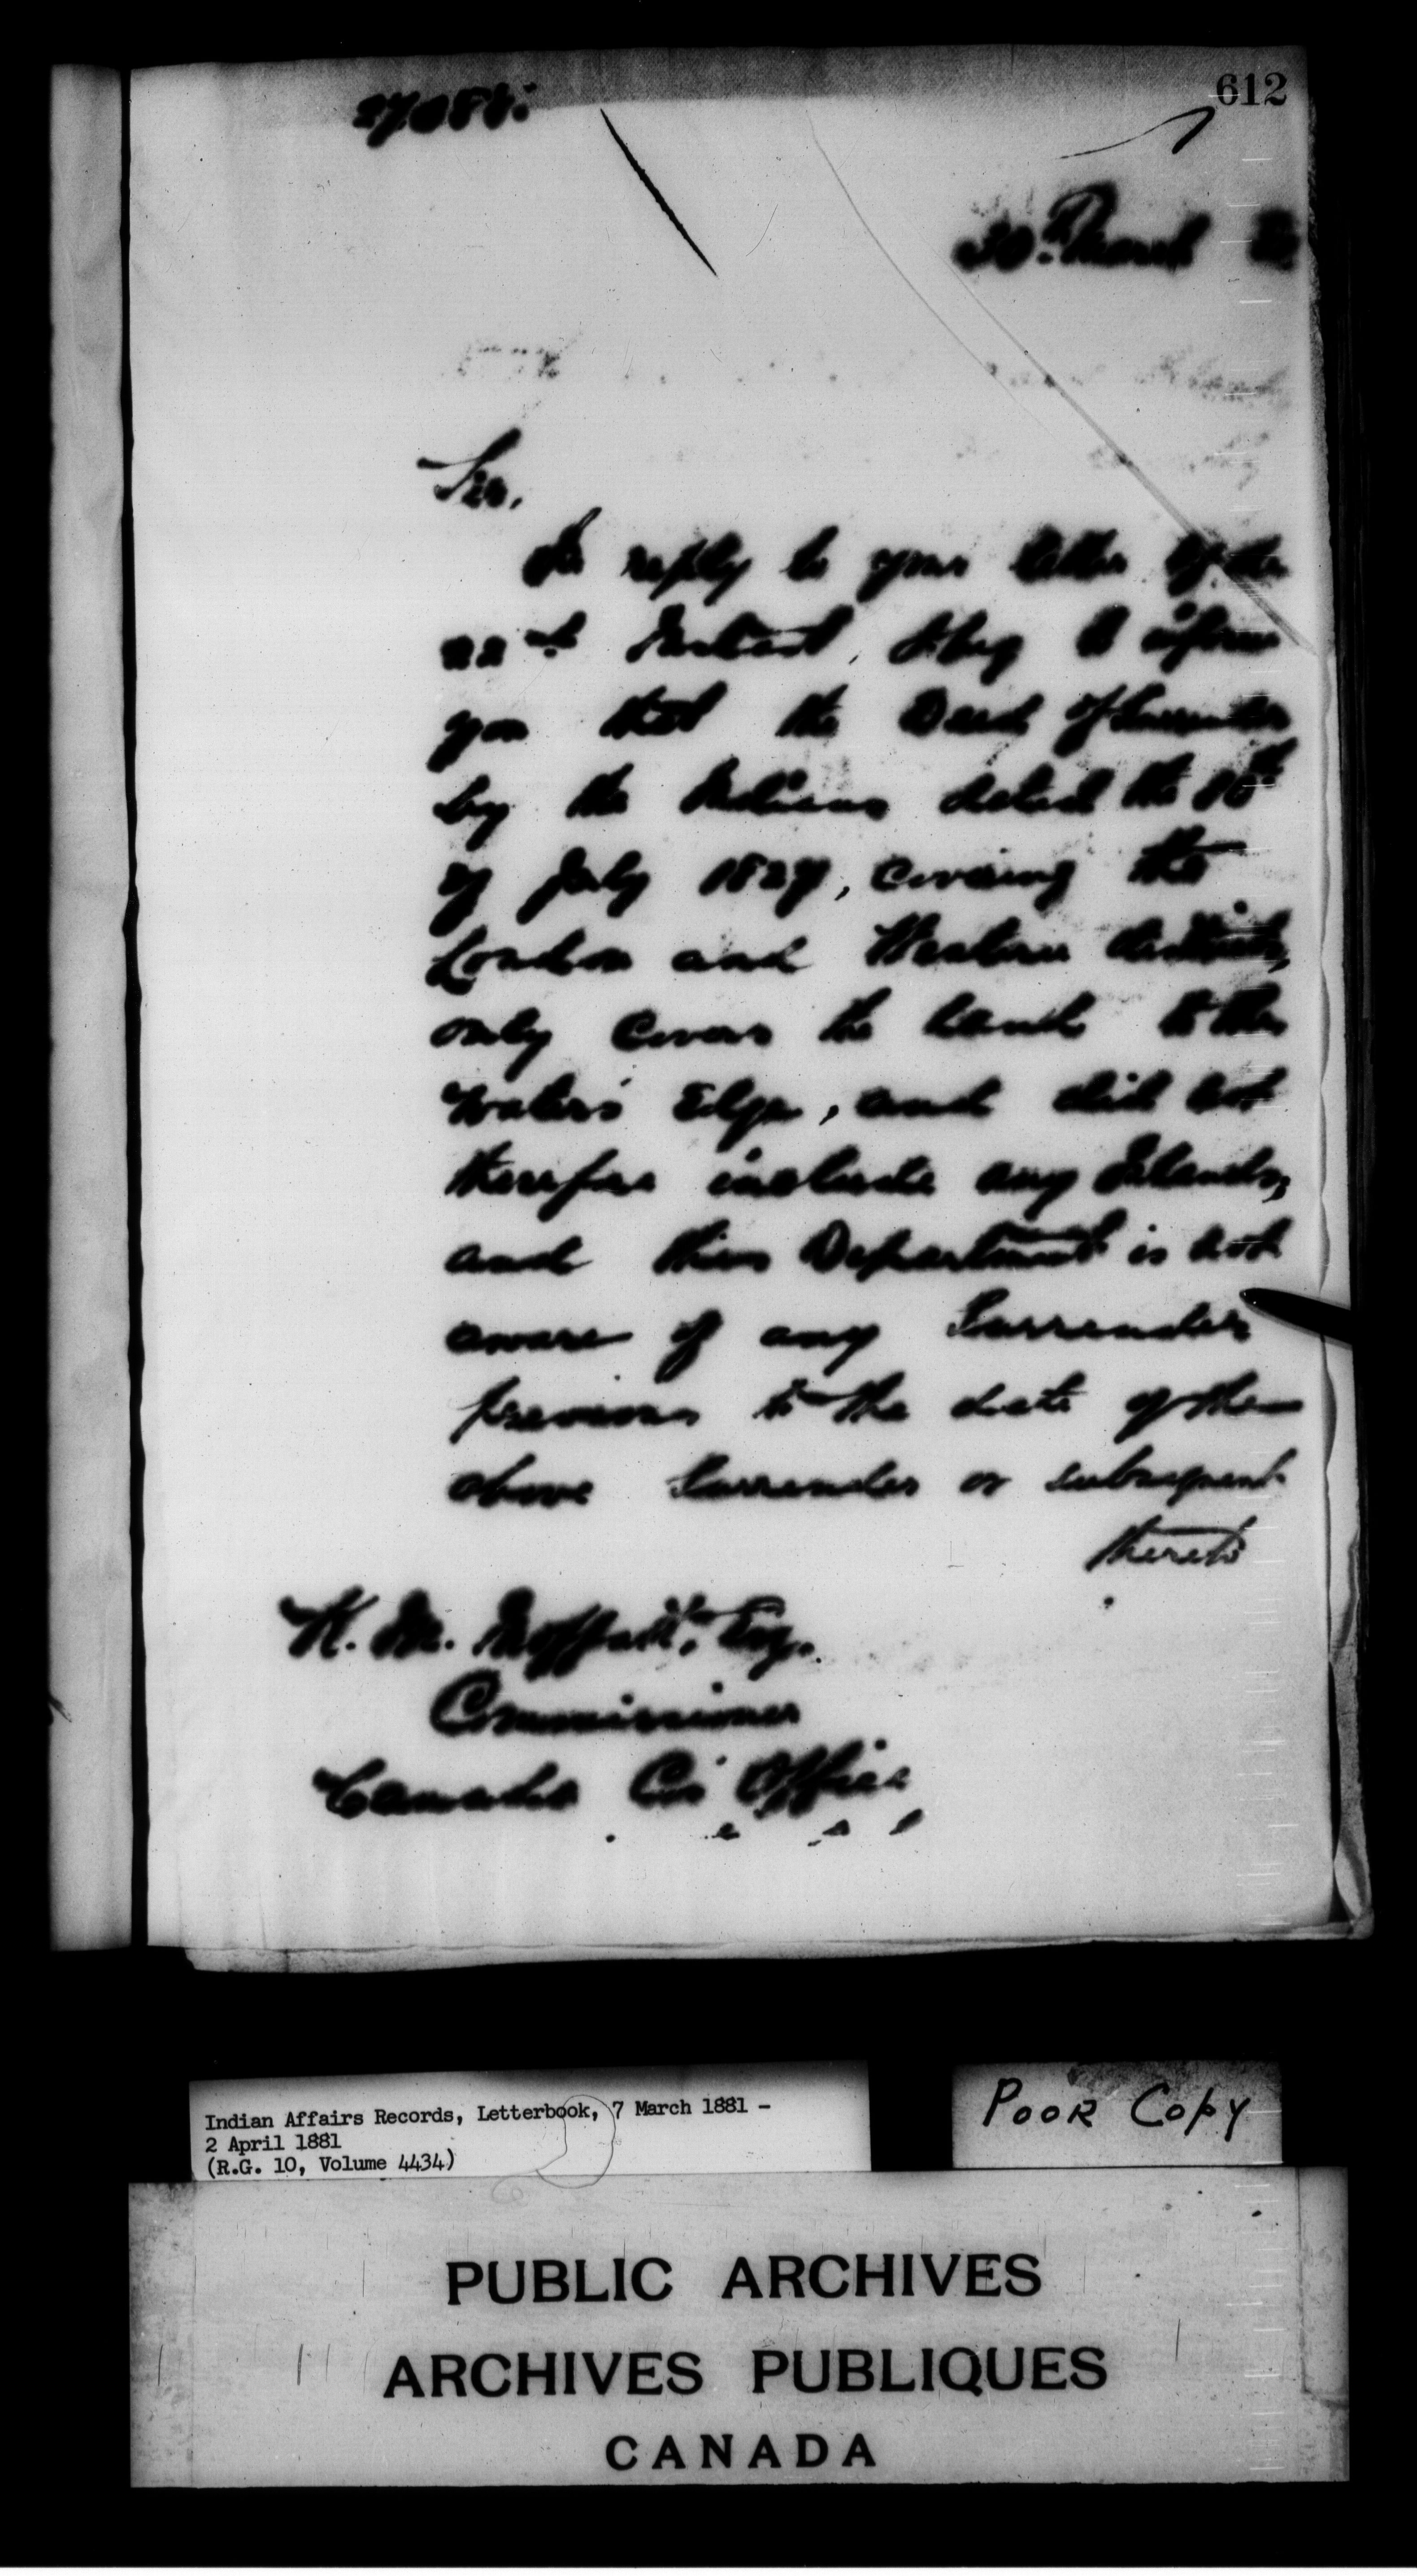 612
30th March
Sir,
In reply to your letter of the
22nd Instant, I beg to inform
you that the Deed of Surrender
by the Indians dated the 10th
of July 1827, covering the
London and Western districts,
only covers the land to the
water's Edge, and did not
therefore include any Islands,
and this Department is not
aware of any Surrender
previous to the date of the
above Surrender or subsequent
thereto
Moffatt, Esq.
Commissioner
Canada Co's Office
Indian Affairs Records, Letterbook, 7 March 1881 -
2 April 1881
(R.G. 10, Volume 4434)
POOR COPY
PUBLIC ARCHIVES
ARCHIVES PUBLIQUES
CANADA